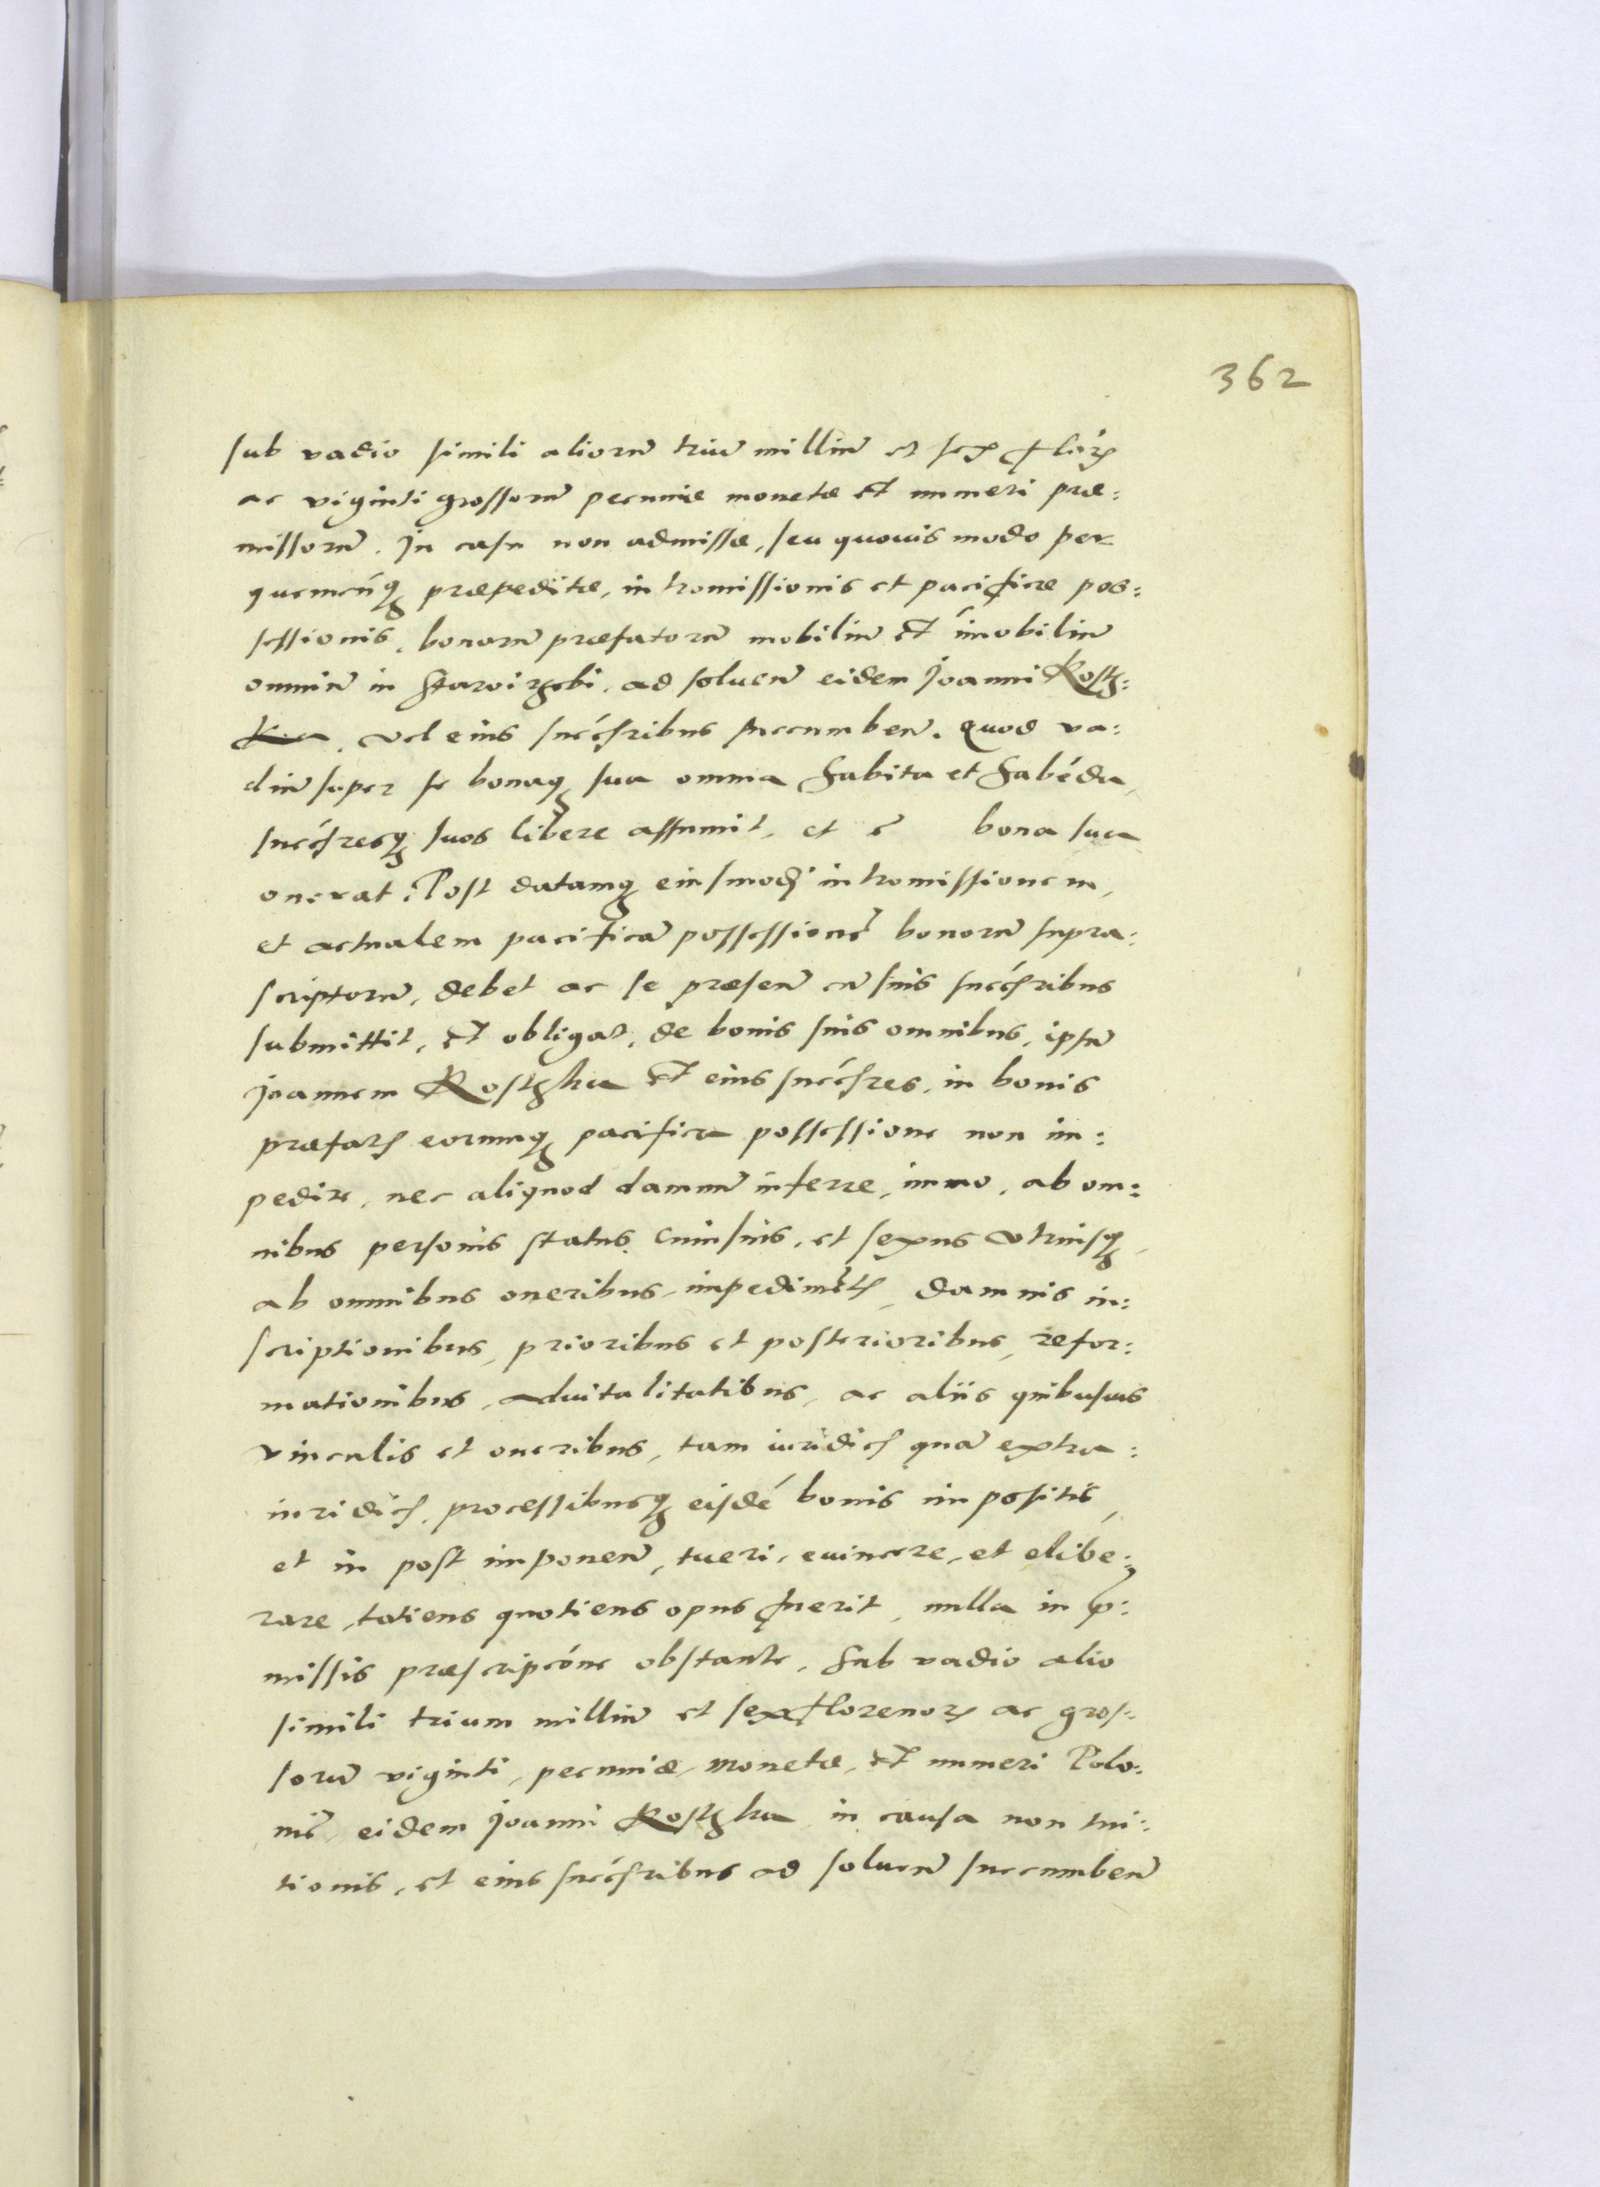 362
sub vadio simili aliorũ triũ milliũ et sex flor
ac viginti grossorũ pecuniæ monetæ et numeri præ:
missorũ. In casu non admissæ, seu quovis modo per
quemcũq præpeditæ, intromissionis et pacificæ pos:
sessionis, bonorũ præfatorũ mobiliũ et ĩmobiliũ
omniũ in Staroirzebi, ad soluen̄ eidem Joanni Kosz:
, vel eius succ̃sribus succumben̄. Quod va:
diũ super se bonaq sua omnia habita et habẽda,
succ̃sresq suos libere assumit, et ẽ bona sua
onerat. Post datamq eiusmodi intromissionem,
et actualem pacificã possessionẽ bonorũ supra:
scriptorũ, debet ac se præsen̄ cũ suis succ̃sribus
submittit, et obligat, de bonis suis omnibus, ipsũ
Joannem Koszhka et eius succ̃sres, in bonis
præfat eorumq pacifica possessione non im:
pedire, nec aliquod damnũ inferre, immo, ab om:
nibus personis status cuiusuis, et sexus utriusq,
ab omnibus oneribus, impedimẽt, damnis in:
scriptionibus, prioribus et posterioribus, refor:
mationibus, advitalitatibus, ac aliis quibusuis
vinculis et oneribus, tam iuridic quã extra:
iuridic, processibusq eisdẽ bonis impositis,
et in post imponen̄, tueri, euincere, et elibe:
rare, totiens quotiens opus fuerit, nulla in p:
missis præscripc̃one obstante, sub vadio alio
simili trium milliũ et sex florenor ac gros:
sorũ viginti, pecuniæ, monetæ, et numeri Polo:
nic̃, eidem Joanni Koszhka in causa non tui:
tionis, et eius succ̃sribus ad soluen̄ succumben̄